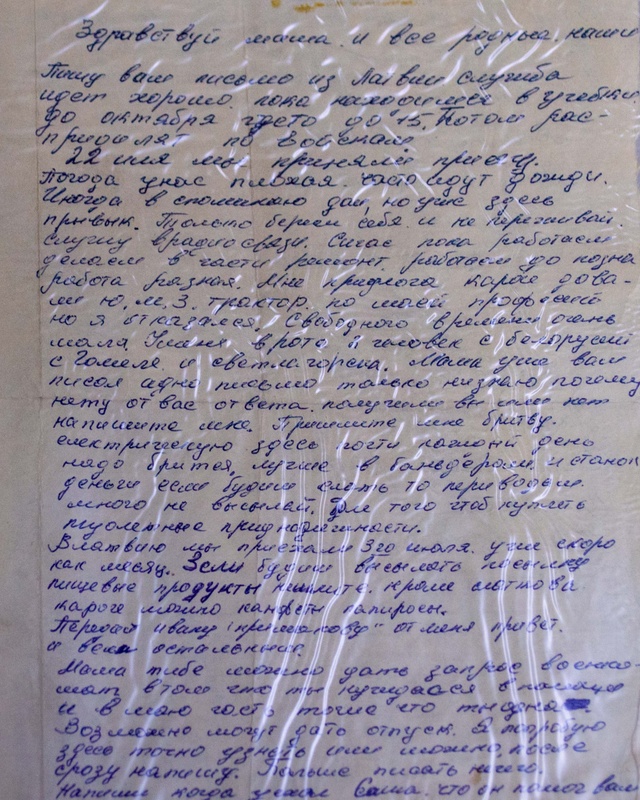 Здравствуй мама и все родные наши
Пишу вам письмо из Латвии служба
идет хорошо. пока находимся в учебки
до октября гдето до 15. Потом рас-
приделят по войскам.
22 июля мы приняли присягу.
Погода унас плохая. часто идут дожди.
Иногда в споминаю дом, но уже здесь
привык. Только береги себя и не перижывай.
служу врадиосвязи. Сичас пока работаем
делаем в части ремонт. работаем до позна
работа разная. Мне
Ю.М.З. трактор. по моей професий
но я отказался. Свободного времени очень
мала У меня в роте человек с белорусий
с Гомеля и светлагорска. Мама уже вам
писал адно письмо только незнаю почему
нету от вас ответа. получили вы или нет
напишите мне. Пришлите мне бритву.
електрическую здесь почти каждый день
надо бритея, лучше в бандероли и станок
деньги если будиш слать то переводом.
много не высылай. для того чтоб купить
туолетные принодлежности.
Влатвию мы приехали 3го июля. уже скоро
как месяц. Если будиш высылать посылку
пищевые продукты кроме
кароче можно канфеты папиросы.
Передай ивану от меня привет.
и всем остальным.
Мама тибе можно дать запрос военко-
мат втом что ты нуждаеся впомощи
и в маю часть тоже что ты одна
Возможно могут дать отпуск. Я попробую
здесь точно узнать или можно после
сразу напишу. Больше писать ничего.
Напиши когда уехал Саша. что он помог вам